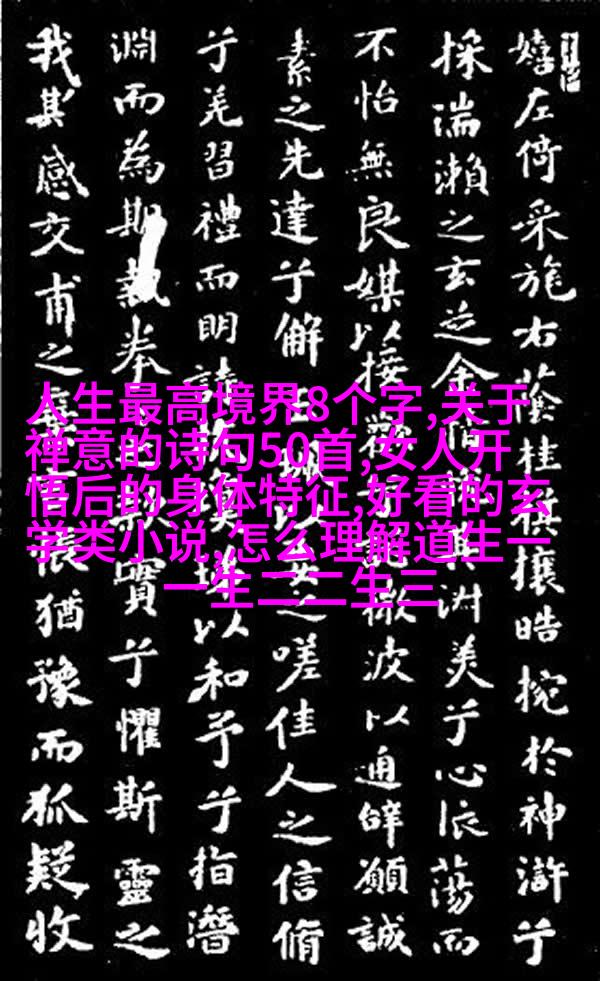 嬉左倚采旄右蔭桂旗攘皓捥於神滸兮
採湍瀬之玄芝余情其淑美兮心振蕩而
不怡無良媒以接歡兮微波以通辭願誠
素之先達兮解玉以要之嗟佳人之信脩
兮羌習禮而明詩以和予兮指潛
淵而為期執拳實兮懼斯靈之
我其感交甫之悵猶豫而狐疑收
人生最高境界8个字,关于
禅意的诗句50首,女人开
悟后的身体特征,好看的玄
学类小说,怎么理解道生一
一生二二生三